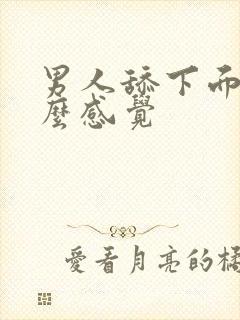 男人舔下而
麼感覺
愛看月亮的橘